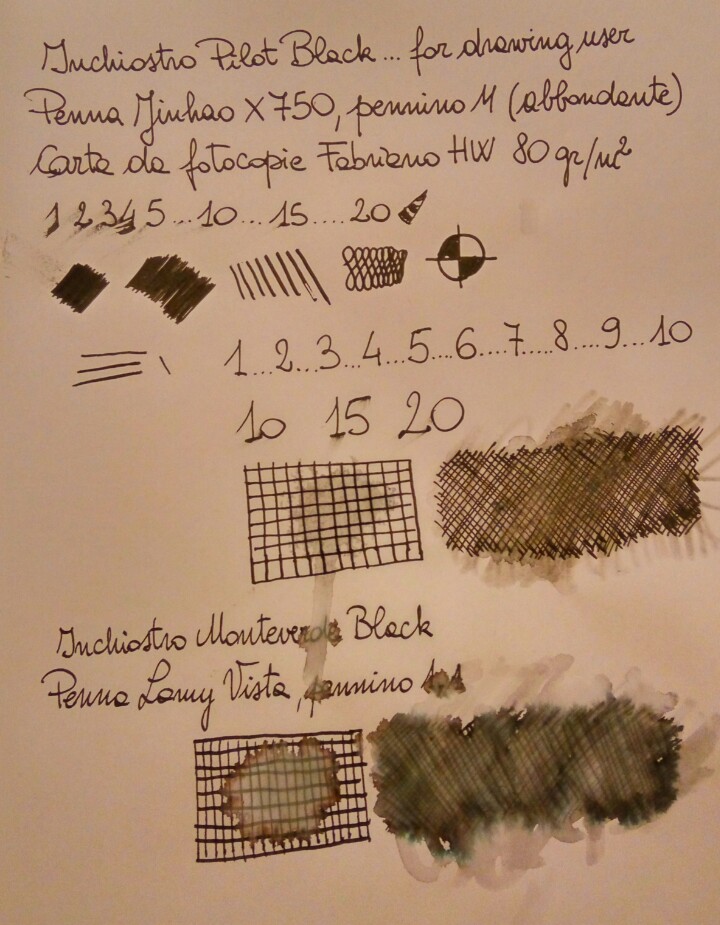 Inchiostro Pilot Black... for drawing user
Penna Jinhao X750, pennino M (abbondante)
Carta da fotocopie Fabriano HW 80 gr/m²
1 2 3 4 5 ... 10 ... 15 .... 20
1...2...3...4...5...6....7.....8....9...10
10 15 20
Inchiostro Monteverde Black
Penna Lamy Vista, pennino 1,1